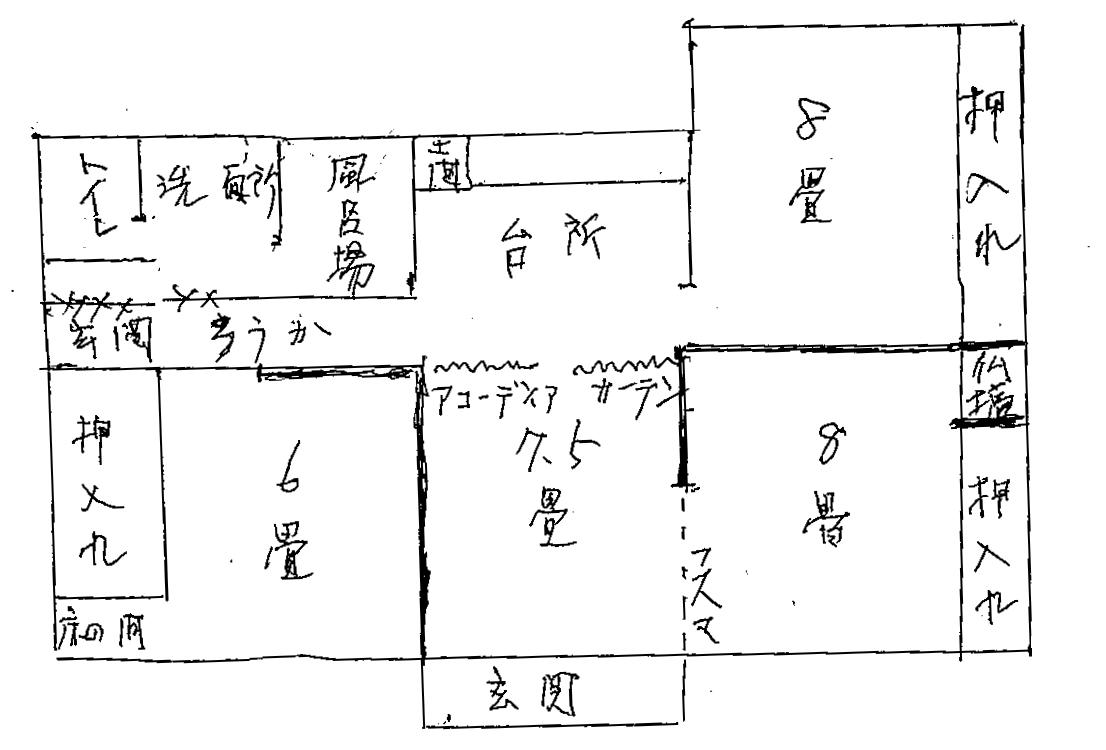 トイレ
洗面所
風呂場
土間
台所
8畳
押入れ
玄関
ろうか
アコーデオン カーテン
仏壇
押入れ
6畳
7.5畳
8畳
押入れ
フスマ
床の間
玄関